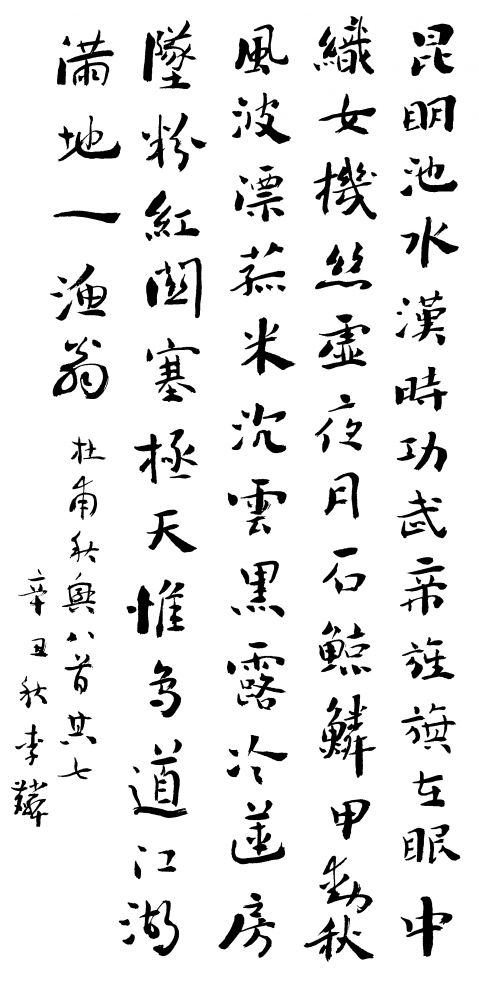 昆明池水漢時功武帝旌旗在眼中
織女機絲虛夜月石鯨鱗甲動秋
風波漂菰米沉雲黑露冷蓮房
墜粉紅關塞極天惟鳥道江湖
滿地一漁翁
杜甫秋興八首其七
辛丑秋李